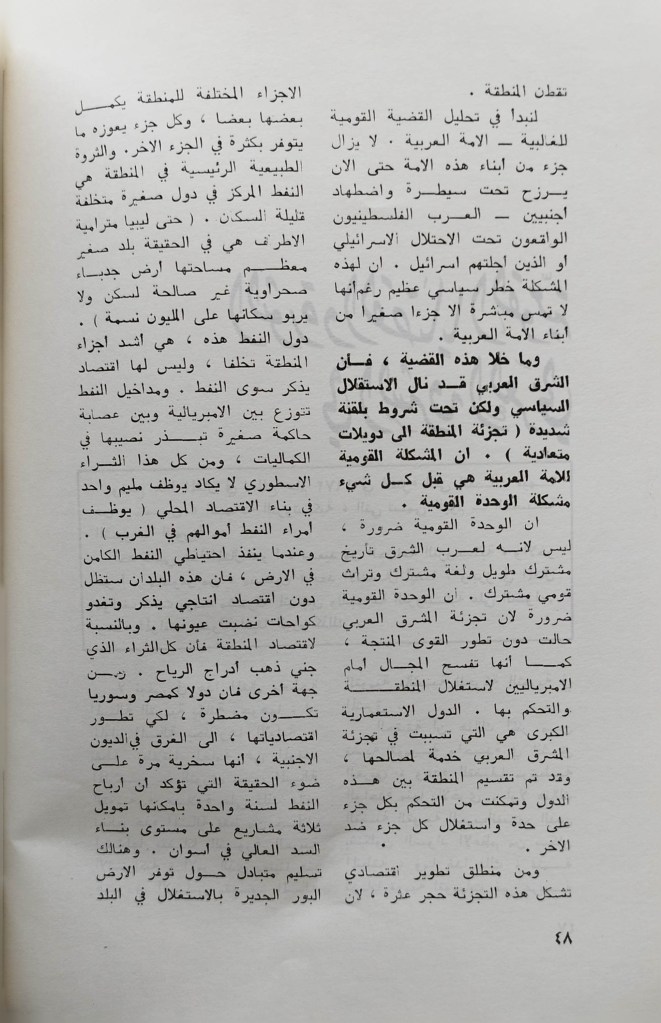 تقطن المنطقة .
لنبدأ في تحليل القضية القومية
للغالبية ــ الامة العربية . لا يزال
جزء من أبناء هذه الامة حتى الان
يرزح تحت سيطرة واضطهاد
أجنبيين ــ العرب الفلسطينيون
الواقعون تحت الاحتلال الاسرائيلي
أو الذين أجلتهم اسرائيل . ان لهذه
المشكلة خطر سياسي عظيم رغم أنها
لا تمس مباشرة الا جزءا صغيرا من
أبناء الامة العربية .
وما خلا هذه القضية ، فان
الشرق العربي قد نال الاستقلال
السياسي ولكن تحت شروط بلقنة
شديدة ( تجزئة المنطقة الى دويلات
متعادية ) . ان المشكلة القومية
للامة العربية هي قبل كل شيء
مشكلة الوحدة القومية .
ان الوحدة القومية ضرورة ،
ليس لانه لعرب الشرق تأريخ
مشترك طويل ولغة مشترك وتراث
قومي مشترك . ان الوحدة القومية
ضرورة لان تجزئة المشرق العربي
حالت دون تطور القوى المنتجة ،
كما أنها تفسح المجال أمام
الامبرياليين لاستغلال المنطقة
والتحكم بها . الدول الاستعمارية
الكبرى هي التي تسببت في تجزئة
المشرق العربي خدمة لمصالحها ،
وقد تم تقسيم المنطقة بين هذه
الدول وتمكنت من التحكم بكل جزء
على حدة واستغلال كل جزء ضد
الاخر .
ومن منطلق تطوير اقتصادي
تشكل هذه التجزئة حجر عثرة ، لان
الاجزاء المختلفة للمنطقة يكمل
بعضها بعضا ، وكل جزء يعوزه ما
يتوفر بكثرة في الجزء الاخر. والثروة
الطبيعية الرئيسية في المنطقة هي
النفط المركز في دول صغيرة متخلفة
قليلة السكان . ( حتى ليبيا مترامية
الاطرف هي في الحقيقة بلد صغير
معظم مساحتها أرض جدباء
صحراوية غير صالحة لسكن ولا
يربو سكانها على المليون نسمة ) .
دول النفط هذه ، هي أشد أجزاء
المنطقة تخلفا ، وليس لها اقتصاد
يذكر سوى النفط . ومداخيل النفط
تتوزع بين الامبريالية وبين عصابة
حاكمة صغيرة تبذر نصيبها في
الكماليات ، ومن كل هذا الثراء
الاسطوري لا يكاد يوظف مليم واحد
في بناء الاقتصاد المحلي ( يوظف
أمراء النفط أموالهم في الغرب ) .
وعندما ينفذ احتياطي النفط الكامن
في الارض ، فان هذه البلدان ستظل
دون اقتصاد انتاجي يذكر وتغدو
كواحات نضبت عيونها . وبالنسبة
لاقتصاد المنطقة فأن كل الثراء الذي
جني ذهب أدراج الرياح . ومن
جهة أخرى فان دولا كمصر وسوريا
تكون مضطرة ، لكي تطور
اقتصادياتها ، الى الغرق في الديون
الاجنبية ، أنها سخرية مرة على
ضوء الحقيقة التي تؤكد أن أرباح
النفط لسنة واحدة بامكانها تمويل
ثلاثة مشاريع على مستوى بناء
السد العالي في أسوان . وهنالك
تسليم متبادل حول توفر الارض
البور الجديرة بالاستغلال في البلد
٤٨